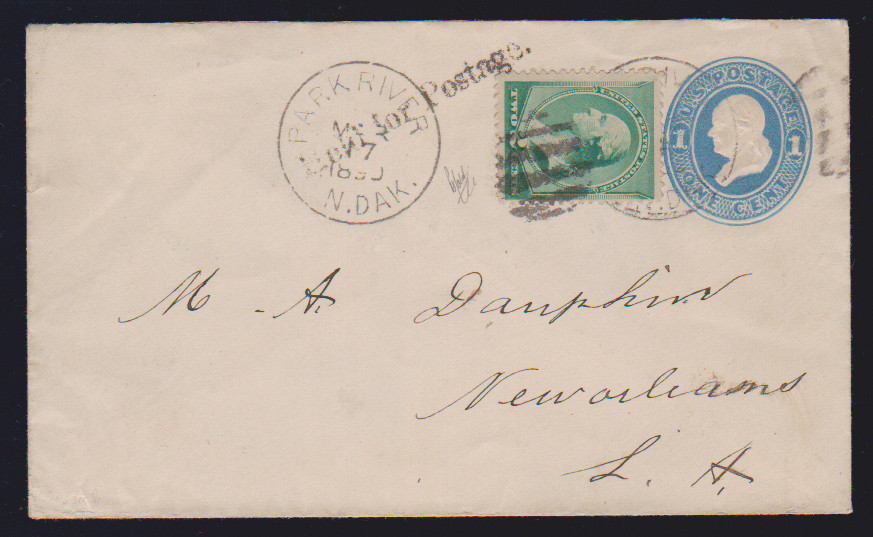 PARK RIVER
MAY
7
1890
N. DAK.
for Postage.
UNITED STATES POSTAGE
TWO
U.S. POSTAGE
1 1
ONE CENT
M. A. Dauphin
New orleans
L. A.